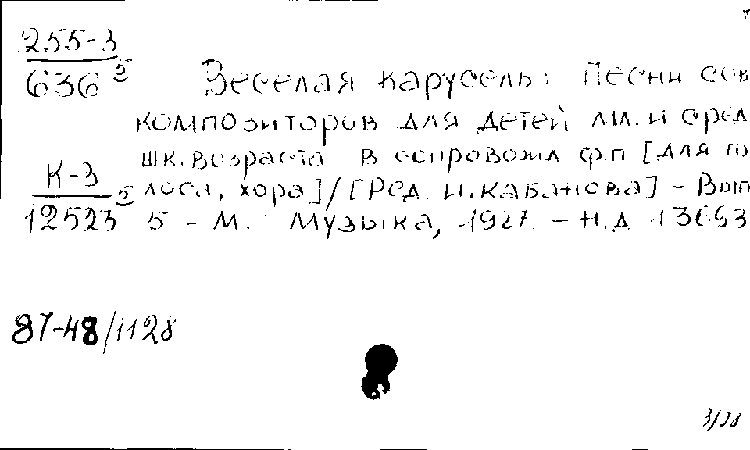 255-3
636 5 Веселая карусель: Песни сов
композиторов для детей мл. и сред
шк. возраста в сопровожд ф.п [для го
К-3 лоса, хора] / [Ред. И. Кабанова] - Вып
12523 5 5 - М. Музыка, 1987. - Н.Д 13663
87-48/1128
3/88